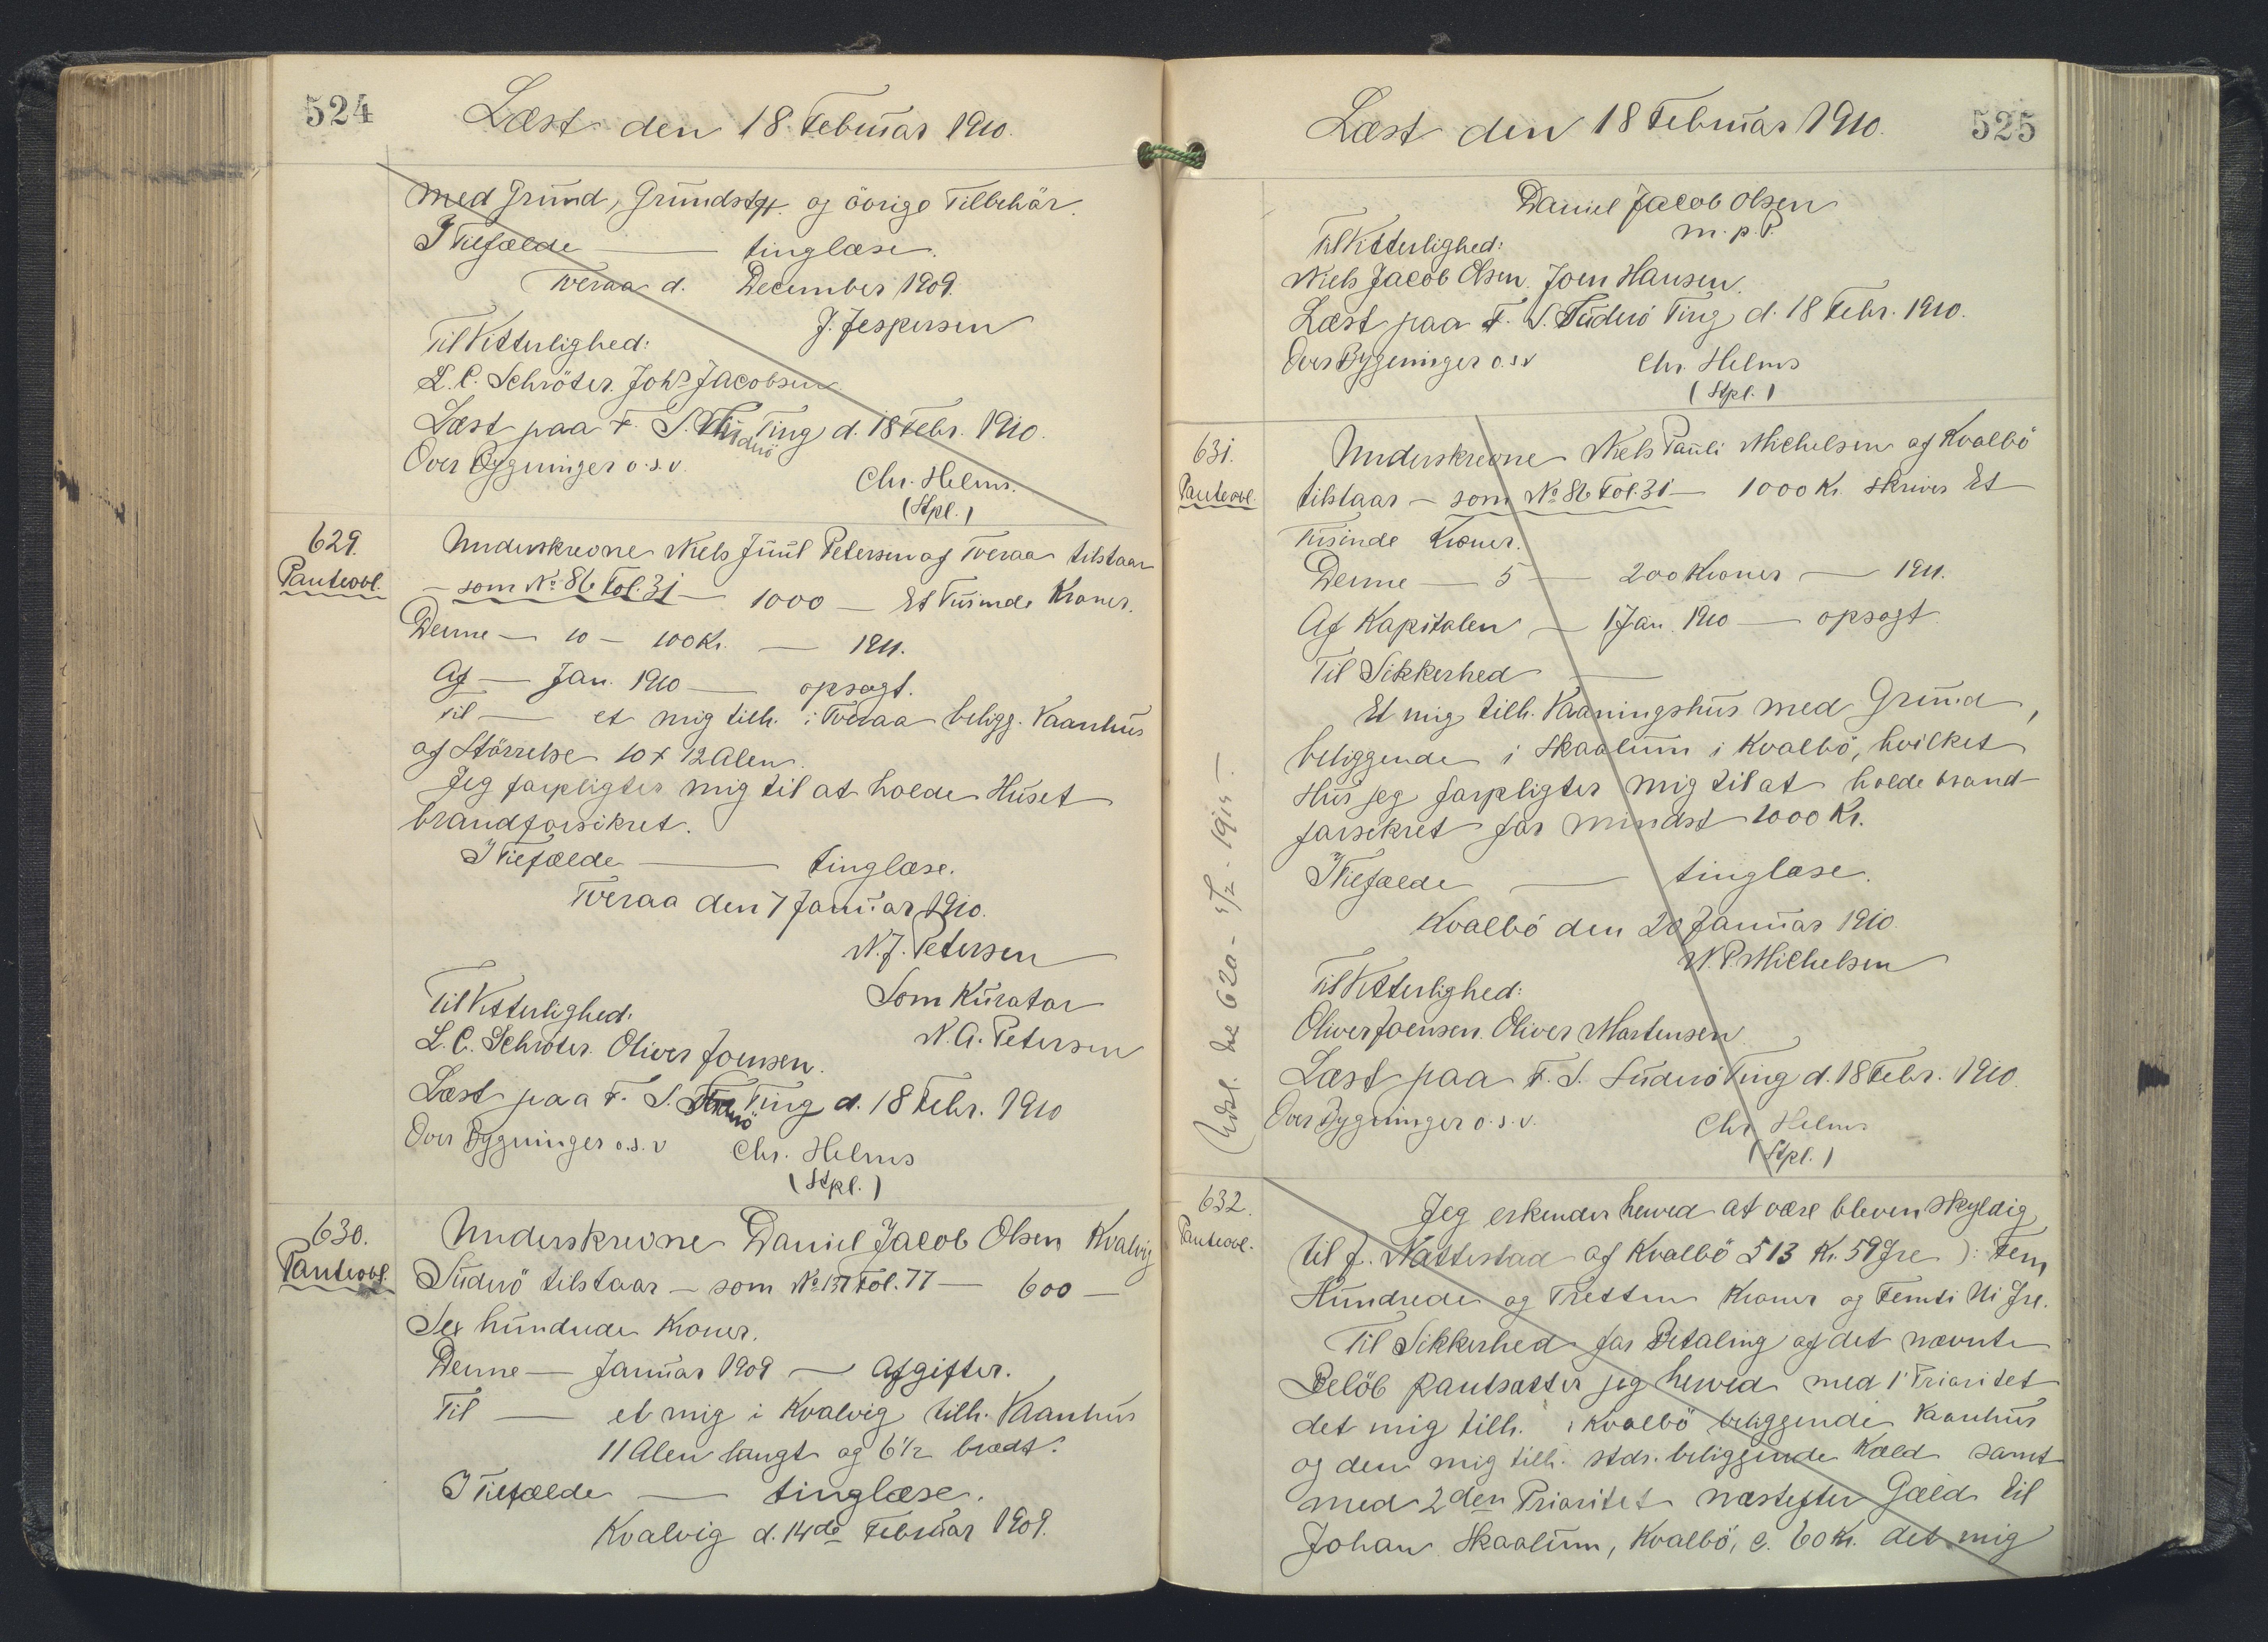 524
Læst den 18. Februar 1910.
med Grund, Grundstk. og övrige Tilbehör.
I Tilfælde — tinglæse.
Tveraa d. December 1909.
J. Jespersen
Til Vitterlighed:
L. C. Schröter. Johs Jacobsen
Læst paa F. S. Suderö Ting d. 18 Febr. 1910.
Over Bygninger o.s.v.
Chr. Helms.
(Stpl.)
629.
Panteobl.
Underskrevne Niels Juul Petersen af Tveraa tilstaar
— som No 86 Fol. 31 — 1000 — Et Tusinde Kroner.
Denne — 10 — 100 Kr. — 1911.
Af — Jan. 1910 — opsagt.
Til — et mig tilh. i Tveraa beligg. Vaanhus
af Störrelse 10 x 12 Alen.
Jeg forpligter mig til at holde Huset
brandforsikret.
I Tilfælde — tinglæse.
Tveraa den 7 Januar 1910.
N. J. Petersen
Som Kurator
N. A. Petersen
Til Vitterlighed:
L. C. Schröter. Oliver Joensen.
Læst paa F. S. Suderö Ting d. 18 Febr. 1910
Over Bygninger o.s.v
Chr. Helms
(Stpl.)
630.
Panteobl.
Underskrevne Daniel Jacob Olsen Kvalvig
Suderö tilstaar — som No 137 Fol. 77 — 600 —
Sex hundrede Kroner.
Denne — Januar 1909 — Afgifter.
Til — et mig i Kvalvig tilh. Vaanhus
11 Alen langt og 6 1/2 bredt.
I Tilfælde — tinglæse.
Kvalvig d. 14de Februar 1909.
Læst den 18 Februar 1910.
525
Daniel Jacob Olsen
m. p. P.
Til Vitterlighed:
Niels Jacob Olsen. Joen Hansen.
Læst paa F. S. Suderö Ting d. 18 Febr. 1910.
Over Bygninger o.s.v
Chr. Helms
(Stpl.)
631.
Panteobl.
Underskrevne Niels Pauli Michelsen af Kvalbö
tilstaar — som No 86 Fol. 31 — 1000 Kr. skriver Et
Tusinde Kroner.
Denne — 5 — 200 Kroner — 1911.
Af Kapitalen — 1 Jan. 1910 — opsagt
Til Sikkerhed —
Et mig tilh. Vaaningshus med Grund,
beliggende i Skaalum i Kvalbö, hvilket
Hus jeg forpligter mig til at holde brand-
forsikret for mindst 1000 Kr.
I Tilfælde — tinglæse.
Kvalbö den 20 Januar 1910.
N. P. Michelsen
Til Vitterlighed:
Oliver Joensen. Oliver Mortensen
Læst paa F. S. Suderö Ting d. 18 Febr. 1910.
Over Bygninger o.s.v.
Chr. Helms
(Stpl.)
632.
Panteobl.
Jeg erkender herved at være bleven skyldig
til J. Nattestad af Kvalbö 513 Kr. 59 Øre ): Fem
Hundrede og Tretten Kroner og Femti Ni Øre.
Til Sikkerhed for Betaling af det nævnte
Belöb pantsætter jeg herved med 1' Prioritet
det mig tilh. i Kvalbö beliggende Vaanhus
og den mig tilh. stds. beliggende Kæld samt
med 2den Prioritet næstefter Gæld til
Johan Skaalum, Kvalbö, c. 60 Kr. det mig